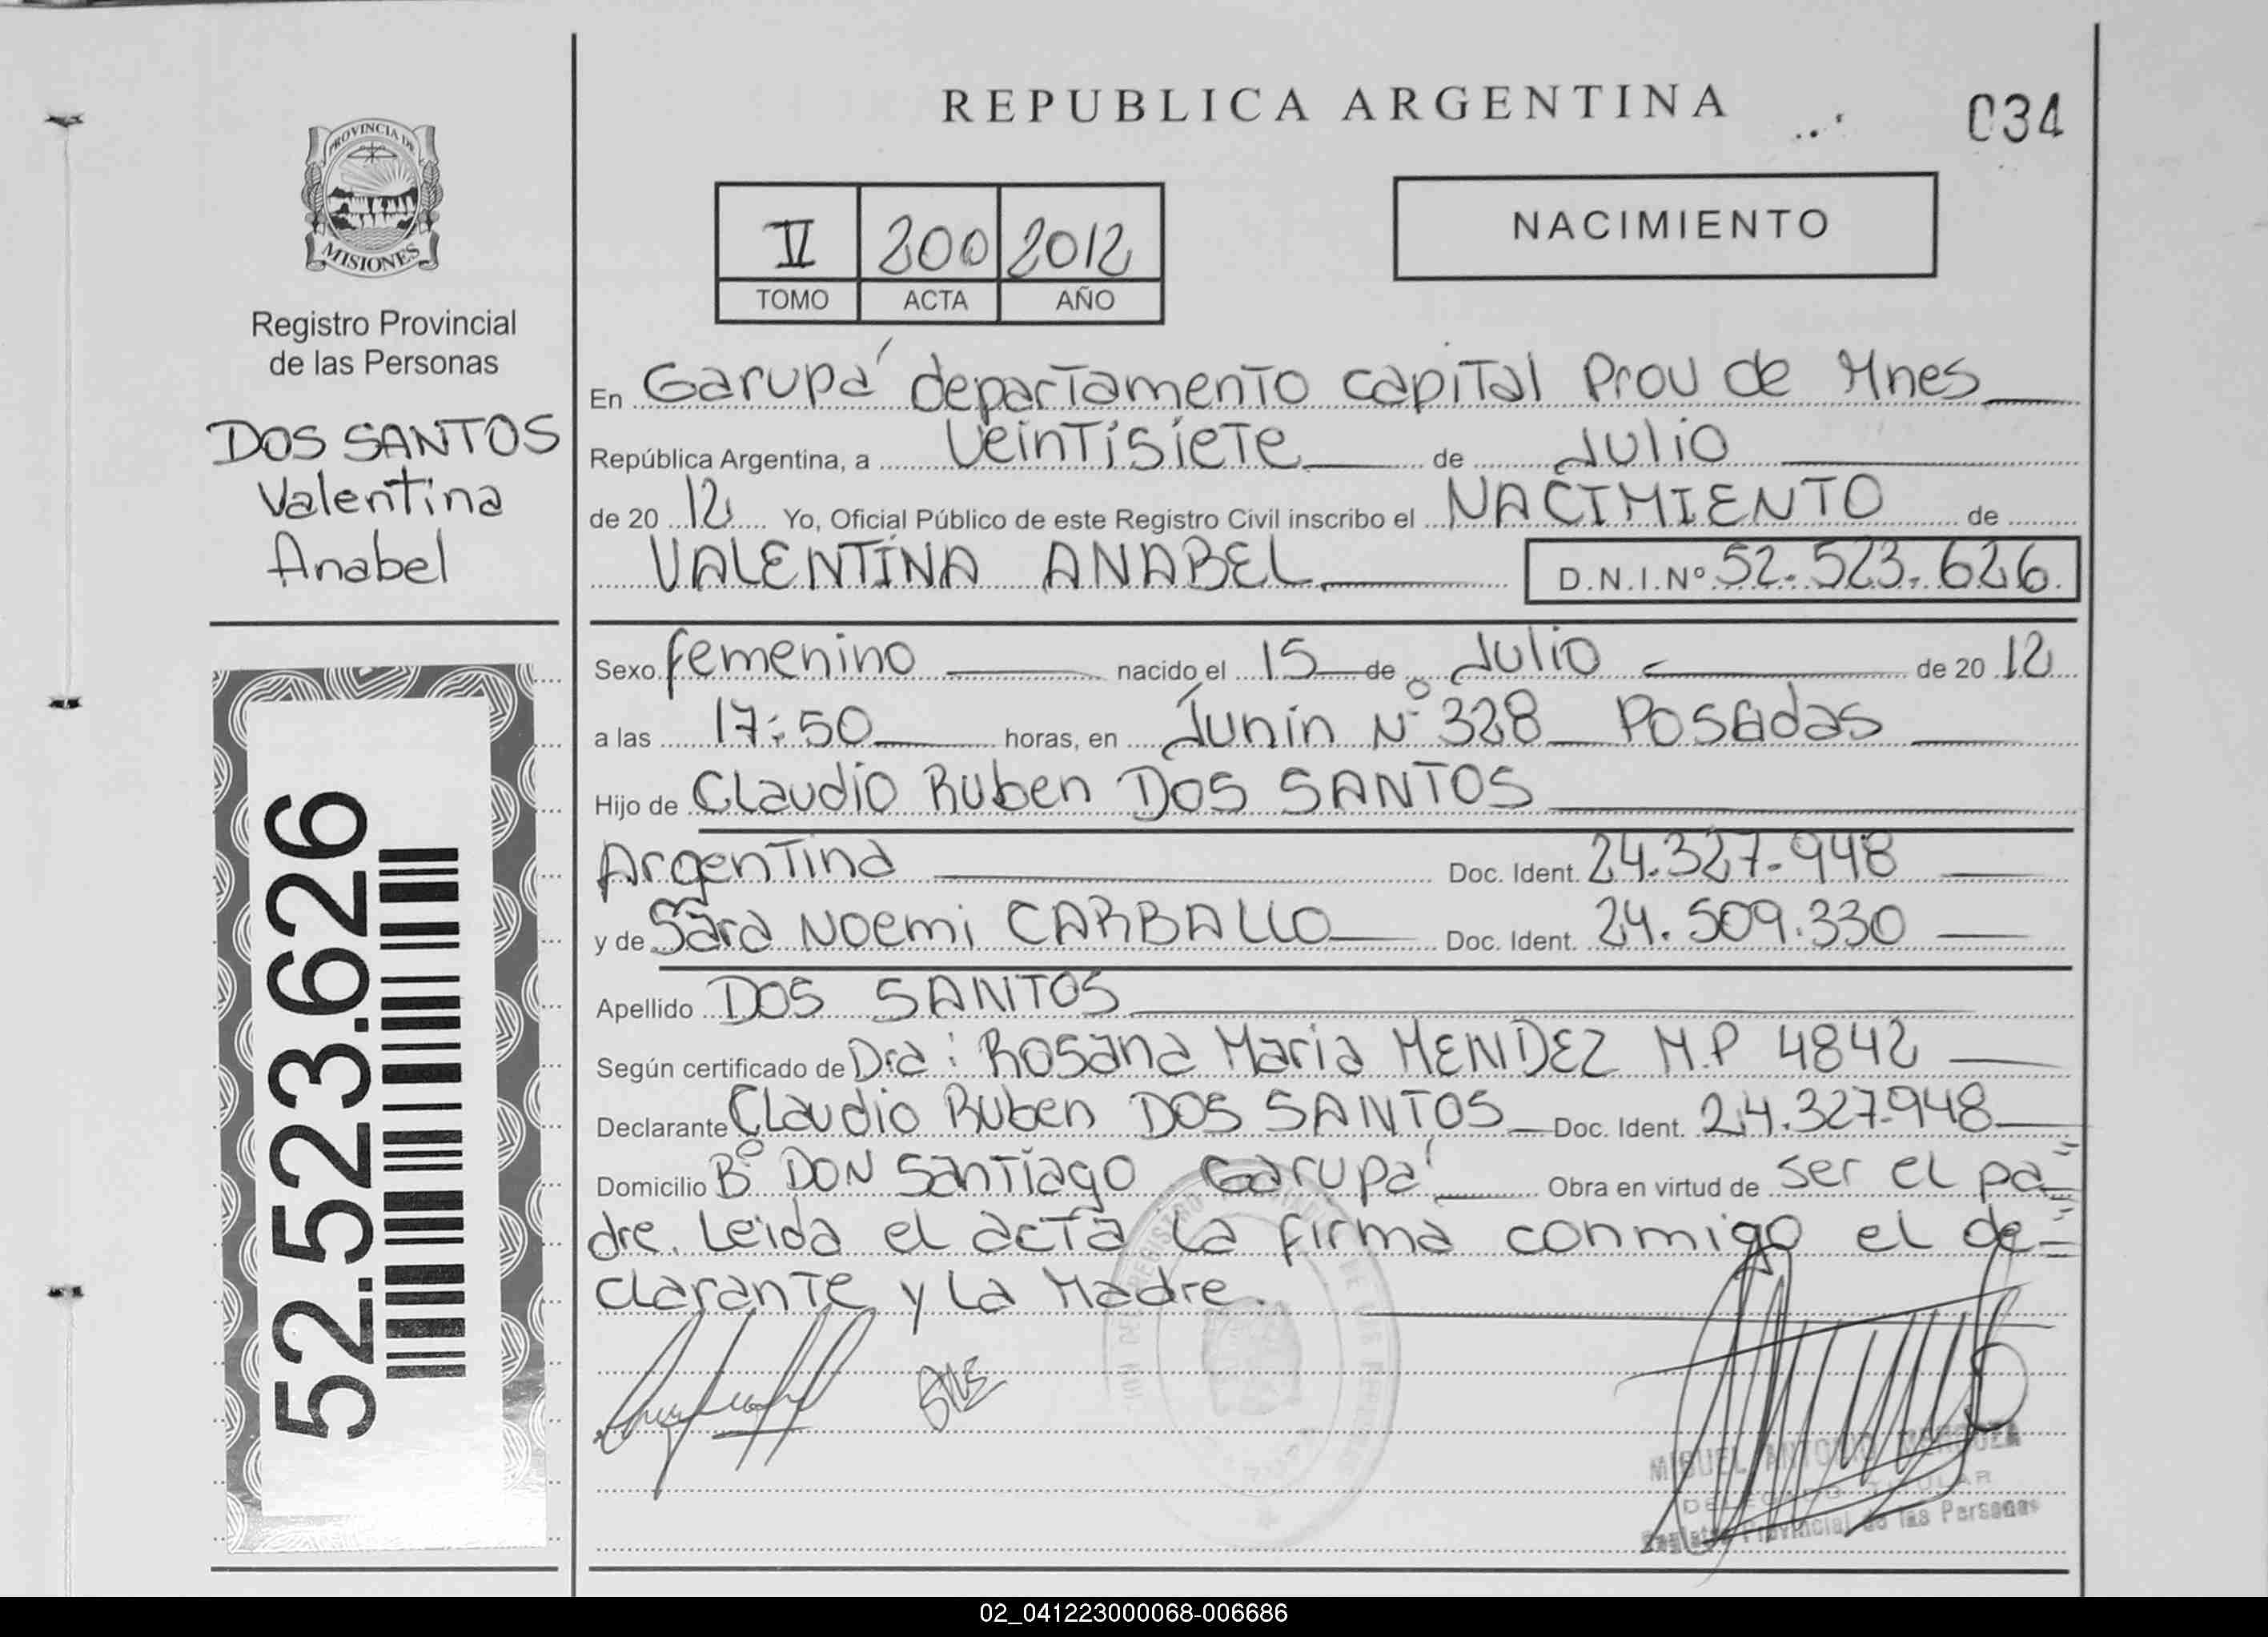 REPUBLICA ARGENTINA
034
PROVINCIA DE
MISIONES
Registro Provincial
de las Personas
DOS SANTOS
Valentina
Anabel
52.523.626
II 200 2012
TOMO ACTA AÑO
NACIMIENTO
En Garupá departamento capital Prov de Mnes
República Argentina, a Veintisiete de Julio
de 20 12 Yo, Oficial Público de este Registro Civil inscribo el NACIMIENTO de
VALENTINA ANABEL D.N.I.Nº 52.523.626
Sexo femenino nacido el 15 de Julio de 20 12
a las 17:50 horas, en Junín Nº 328 Posadas
Hijo de Claudio Ruben DOS SANTOS
Argentina Doc. Ident. 24.327.948
y de Sara Noemi CARBALLO Doc. Ident. 24.509.330
Apellido DOS SANTOS
Según certificado de Dra: Rosana Maria MENDEZ M.P 4842
Declarante Claudio Ruben DOS SANTOS Doc. Ident. 24.327.948
Domicilio Bº DON Santiago Garupá Obra en virtud de ser el pa=
dre. Leida el acta la firma conmigo el de=
clarante y la Madre.
MIGUEL ANTONIO
DELEGADO TITULAR
Registro Provincial de las Personas
02_041223000068-006686